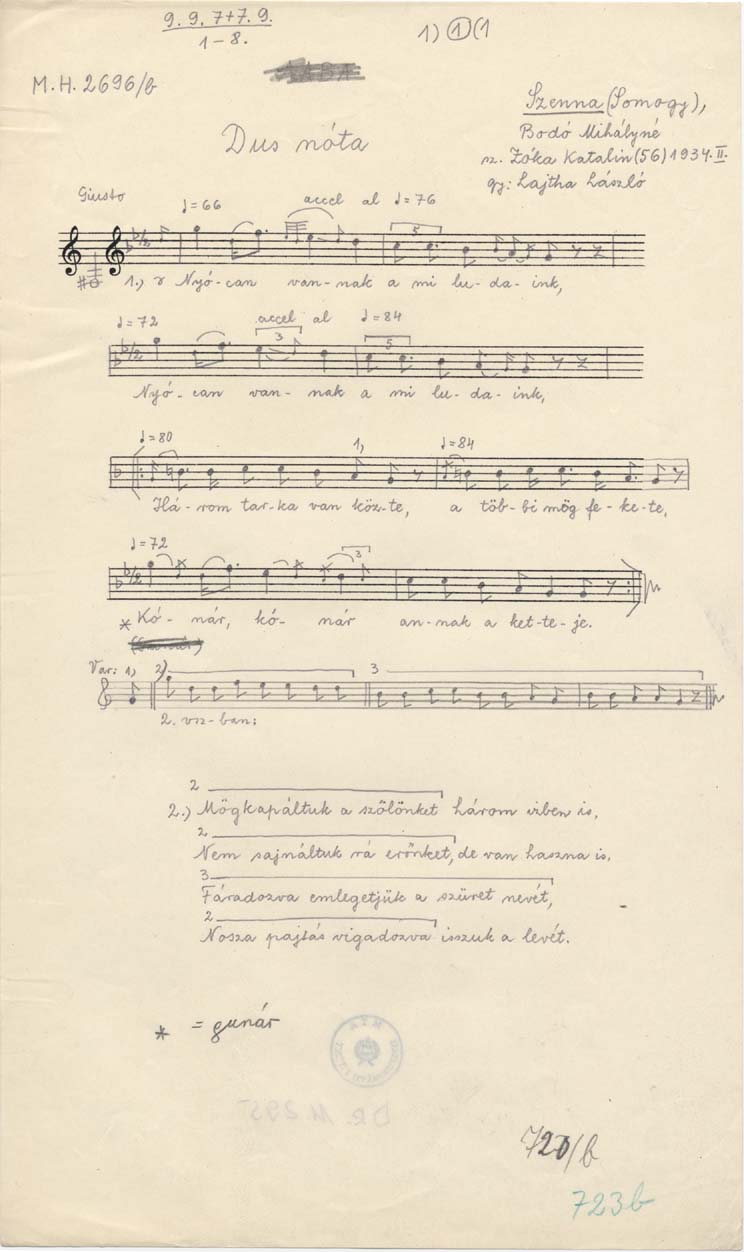 9. 9. 7+7. 9.
1 – 8.
1) ① (1
M.H. 2696/b
Szenna (Somogy),
Bodó Mihályné
sz. Zóka Katalin (56) 1934. II.
gy: Lajtha László
Dus nóta
Giusto
♩=66 accel al ♩=76
5
1.) Nyó-can van-nak a mi lu-da-ink,
♩=72 accel al ♩=84
3 5
Nyó-can van-nak a mi lu-da-ink,
♩=80 1, ♩=84
Há-rom tar-ka van köz-te, a töb-bi mög fe-ke-te,
♩=72
3
* Kó-nár, kó-nár an-nak a ket-te-je.
Var: 1, 2) 3
2. vsz-ban:
2
2.) Mögkapáltuk a szőlőnket három izben is,
2
Nem sajnáltuk rá erőnket, de van haszna is,
3
Fáradozva emlegetjük a szüret nevét,
2
Nosza pajtás vigadozva isszuk a levét.
* = gunár
720/b
723b